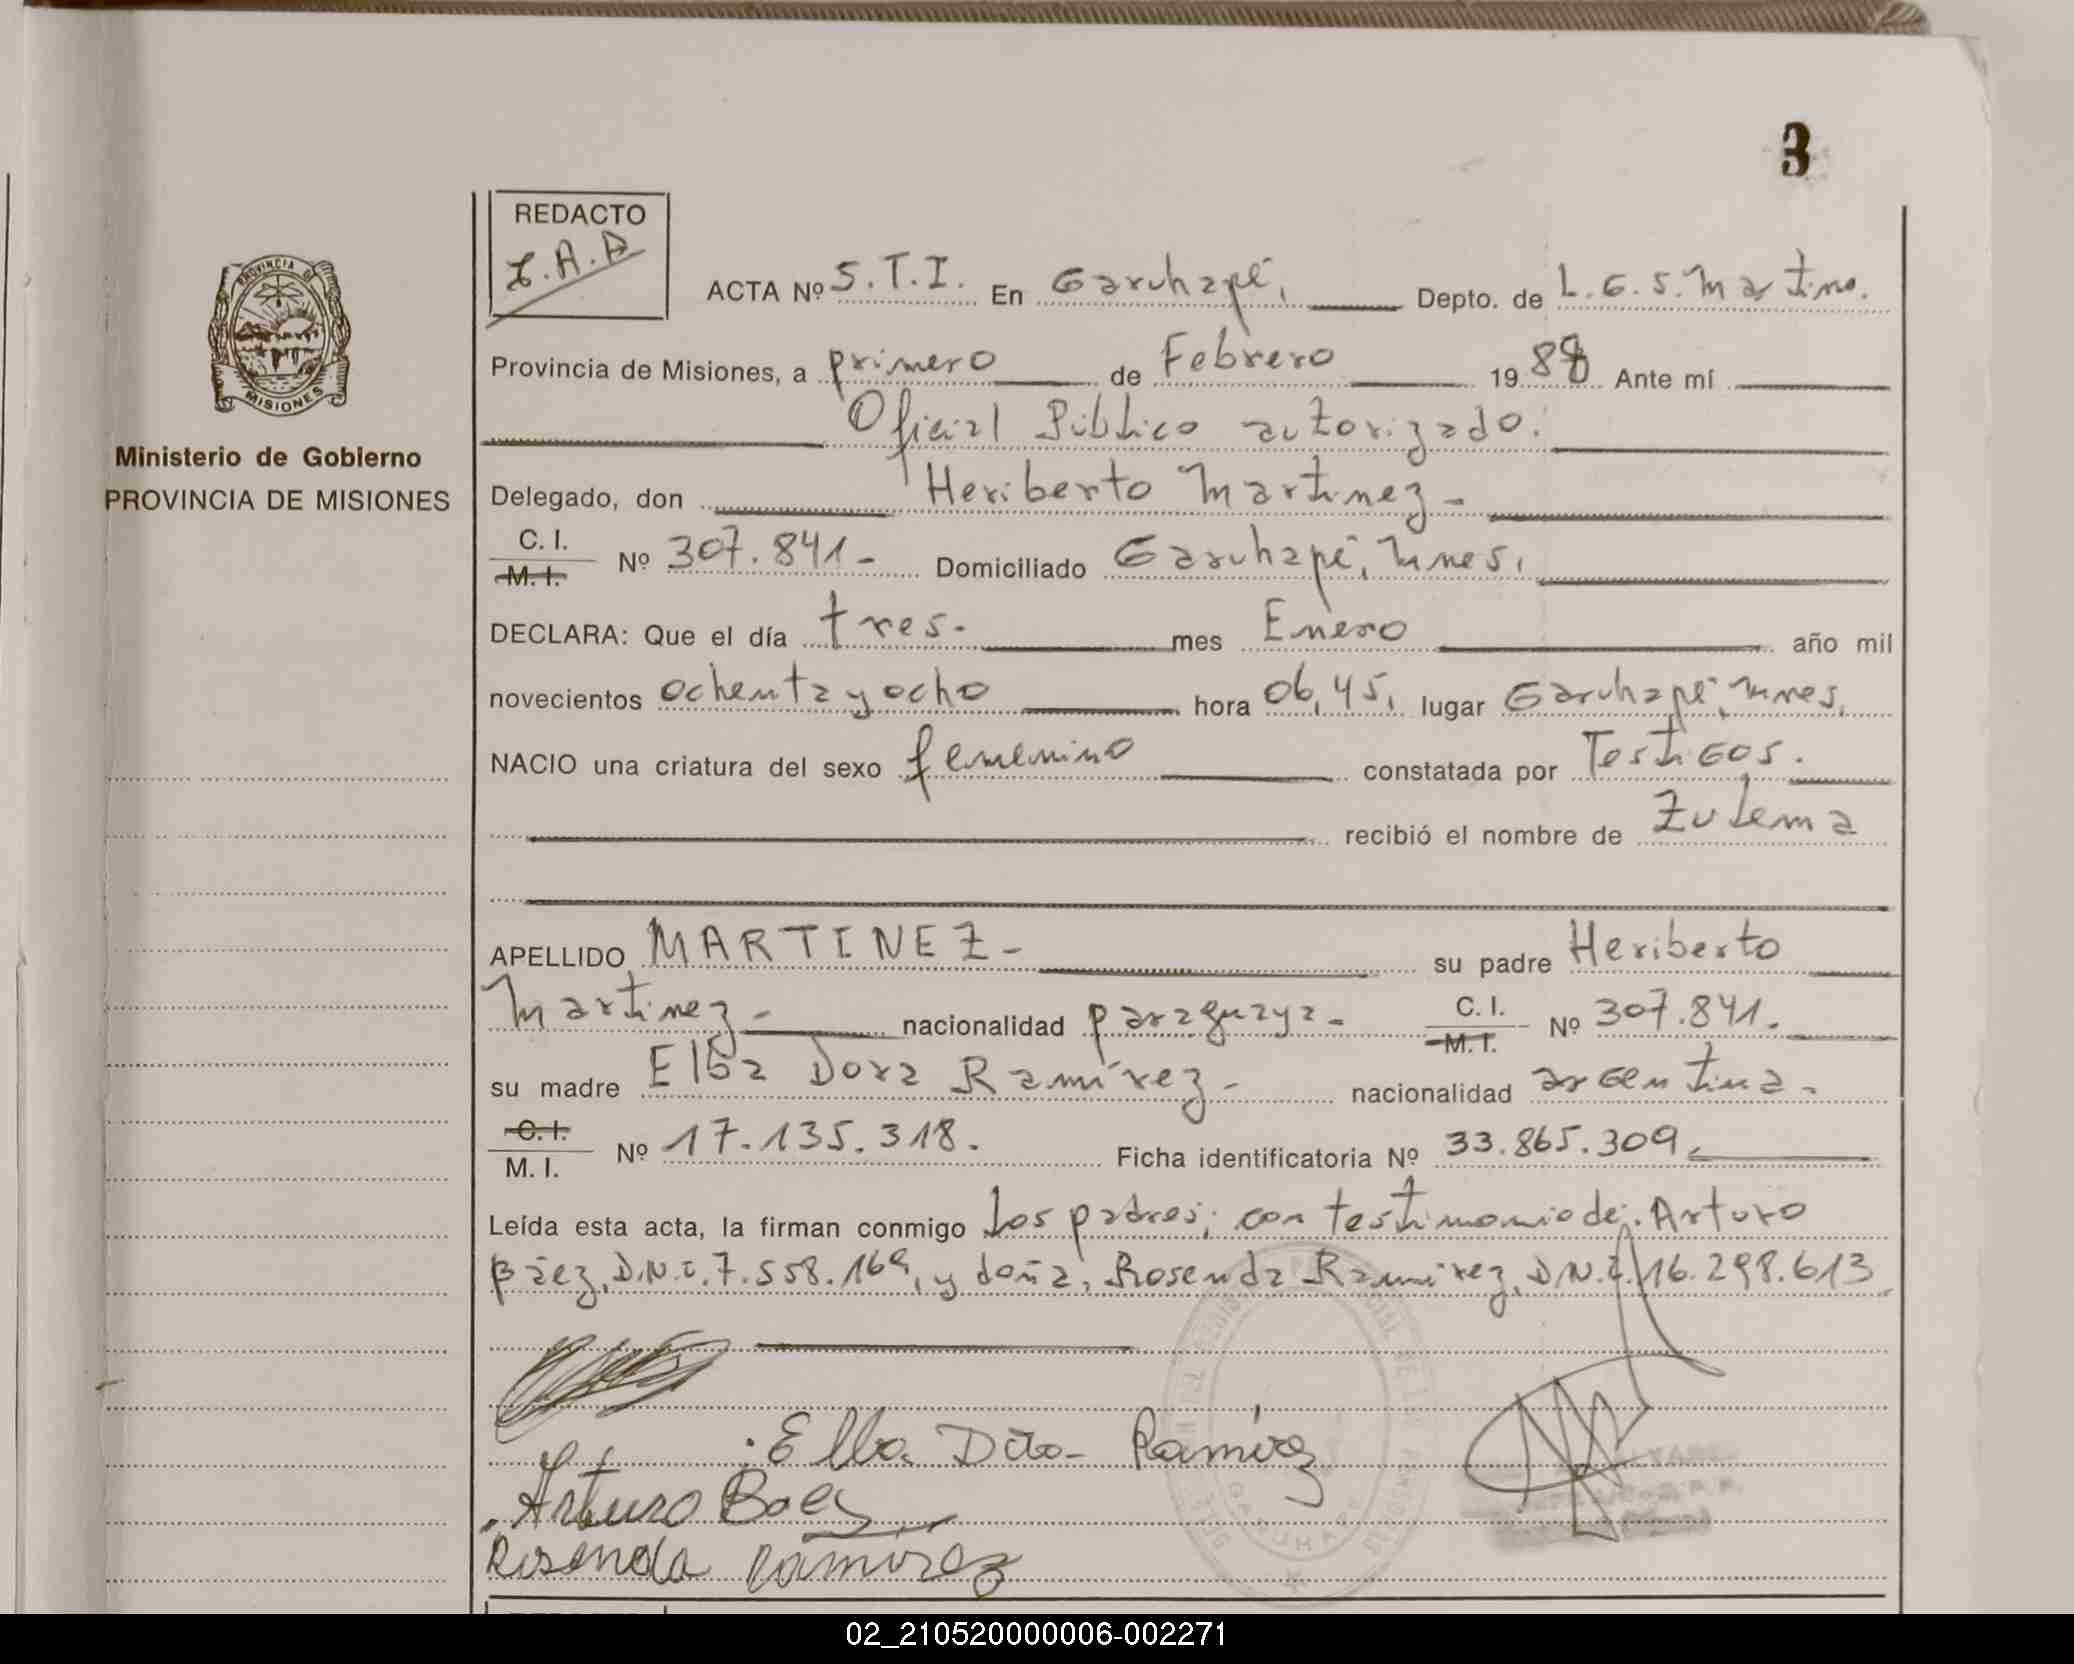 3
REDACTO
ACTA Nº S.T.I. En Garuhapé, Depto. de L.G.S. Martino.
PROVINCIA DE MISIONES
Provincia de Misiones, a primero de Febrero 1988 Ante mí
Oficial Público autorizado.
Ministerio de Gobierno
PROVINCIA DE MISIONES
Delegado, don Heriberto Martinez -
C. I. M. I. Nº 307.841 - Domiciliado Garuhapé, Mnes.
DECLARA: Que el día tres. mes Enero año mil
novecientos ochenta y ocho hora 06,45, lugar Garuhapé, Mnes,
NACIO una criatura del sexo femenino constatada por Testigos.
recibió el nombre de Zulema
APELLIDO MARTINEZ - su padre Heriberto
Martinez - nacionalidad paraguaya - C. I. M. I. Nº 307.841.
su madre Elba Dora Ramírez - nacionalidad argentina -
C. I. M. I. Nº 17.135.318. Ficha identificatoria Nº 33.865.309
Leída esta acta, la firman conmigo los padres; con testimonio de; Arturo
Báez, D.N.I. 7.558.169, y doña, Rosenda Ramirez, D.N.I. 16.298.613
Elba Ramírez
Arturo Baez
Rosenda Ramirez
GARUHAPE
02_210520000006-002271